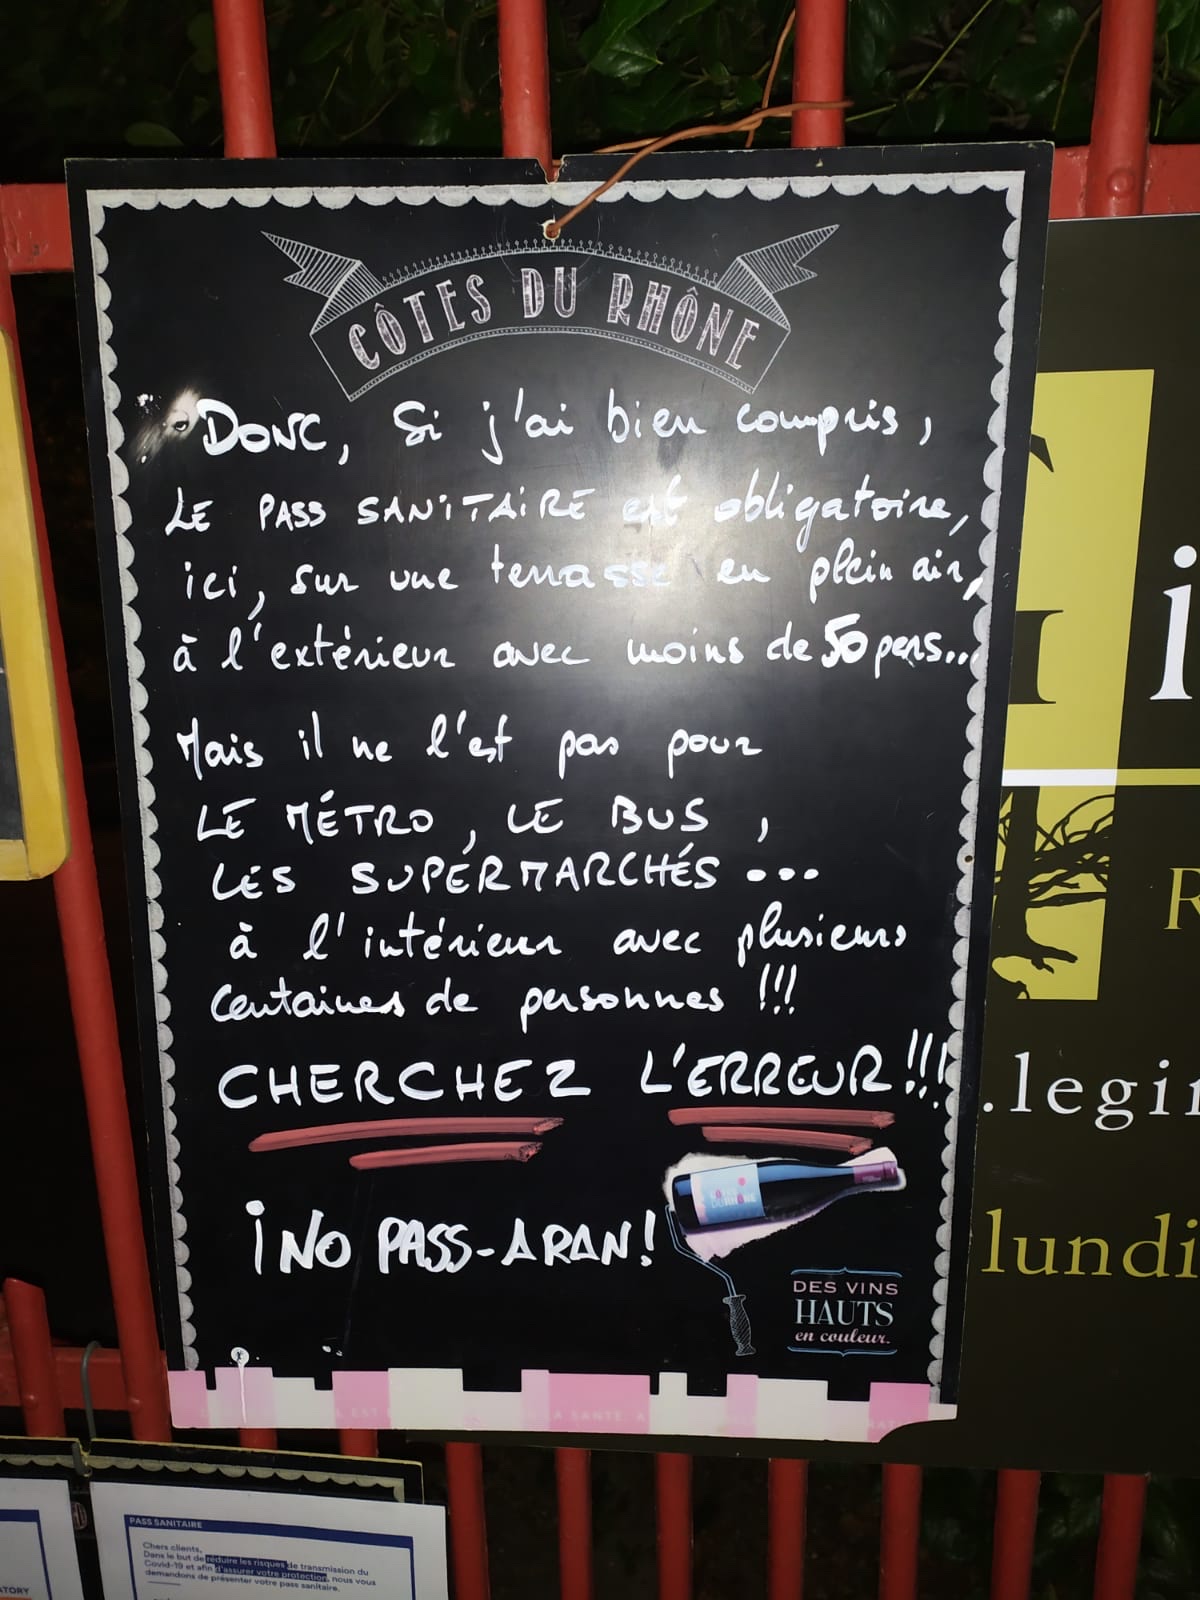 CÔTES DU RHÔNE
DONC, Si j'ai bien compris,
LE PASS SANITAIRE est obligatoire,
ici, sur une terrasse en plein air,
à l'extérieur avec moins de 50 pers...
Mais il ne l'est pas pour
LE MÉTRO, LE BUS,
LES SUPERMARCHÉS...
à l'intérieur avec plusieurs
Centaines de personnes !!!
CHERCHEZ L'ERREUR !!!
¡NO PASS-ARAN!
CÔTES
DU RHÔNE
DES VINS
HAUTS
en couleur.
i
R
.legin
lundi
PASS SANITAIRE
Chers clients,
Dans le but de réduire les risques de transmission du
Covid-19 et afin d'assurer votre protection, nous vous
demandons de présenter votre pass sanitaire.
ATORY